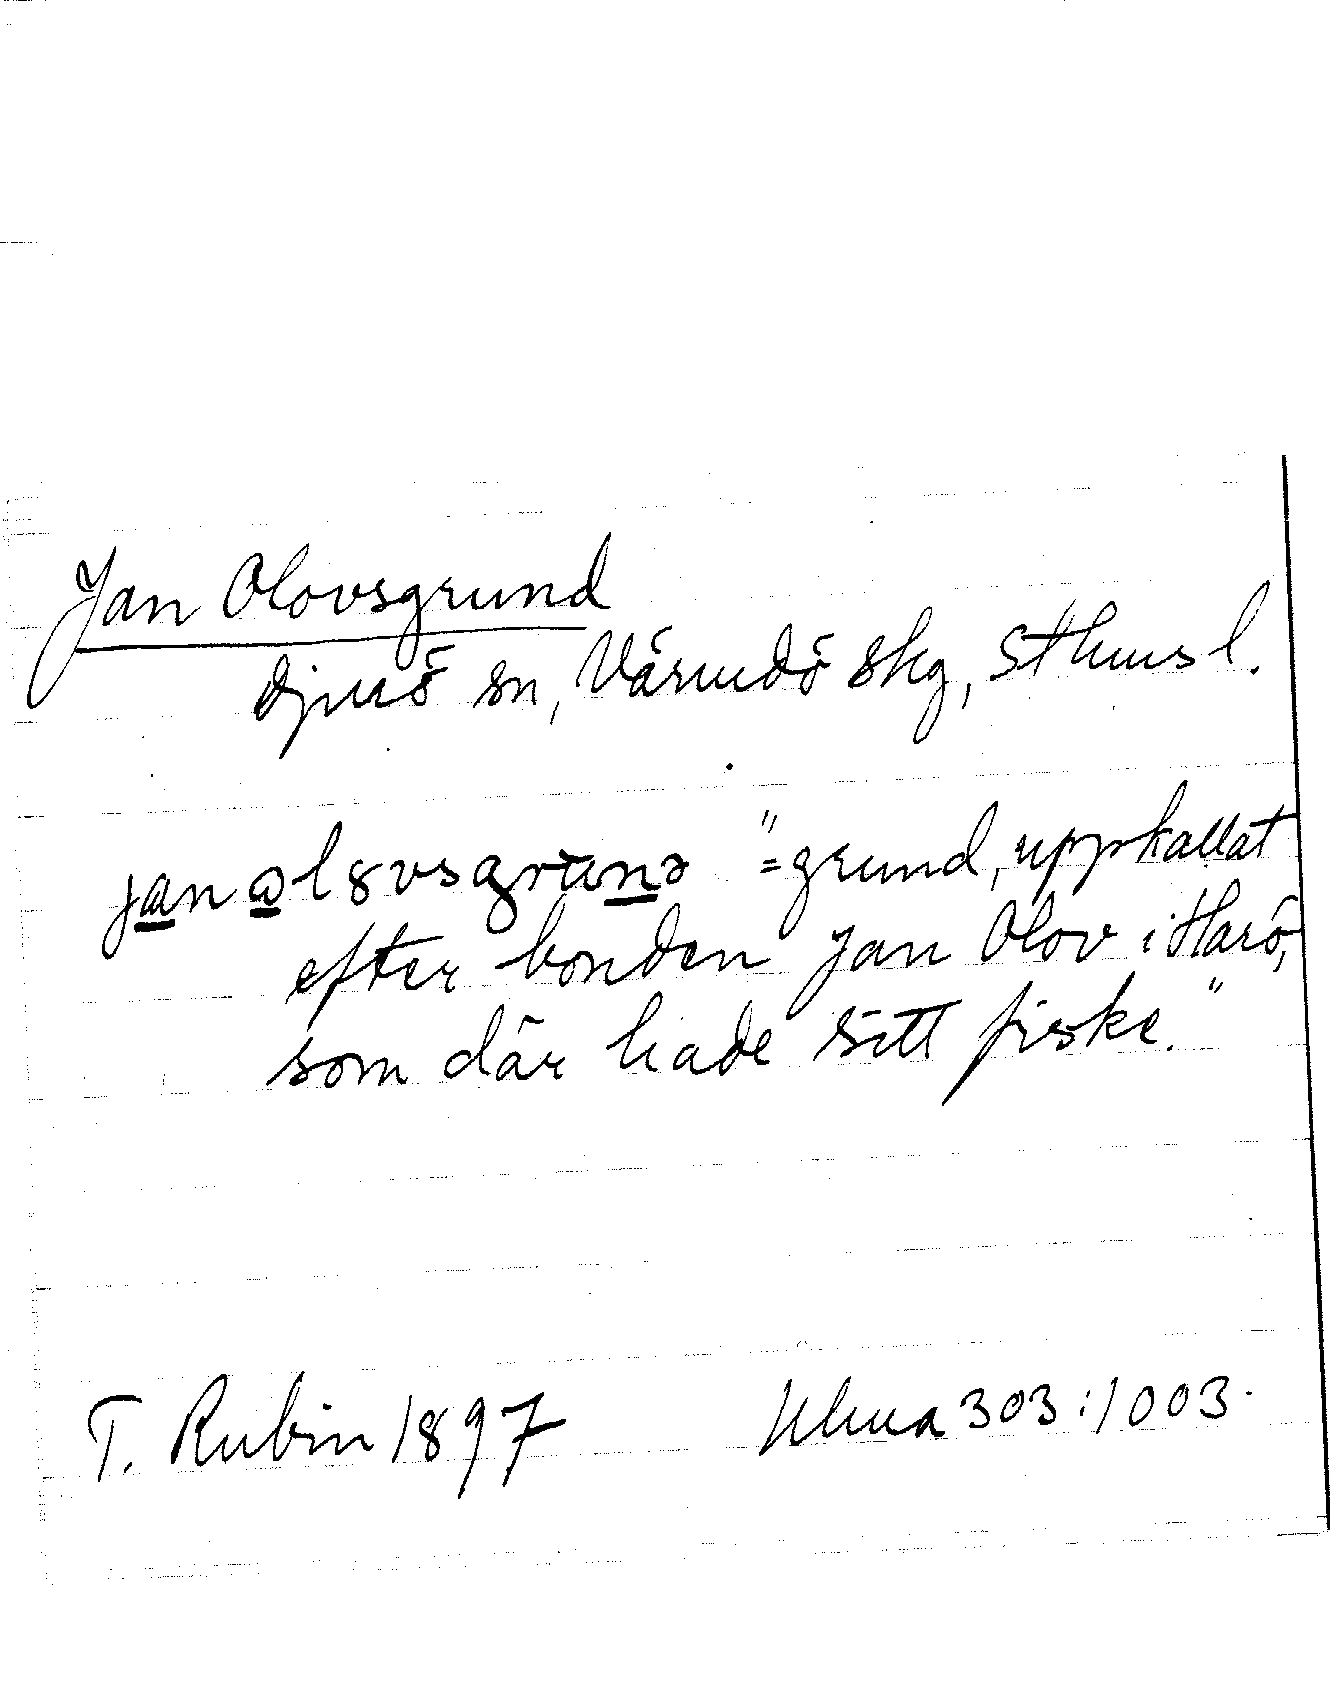 Jan Olovsgrund
Djurö sn, Värmdö skg, Sthms l.
jan ol8vsgrunə "=grund, uppkallat
efter bonden Jan Olov i Harö,
som där hade sitt fiske."
T. Rubin 1897 Ulma 303:1003.